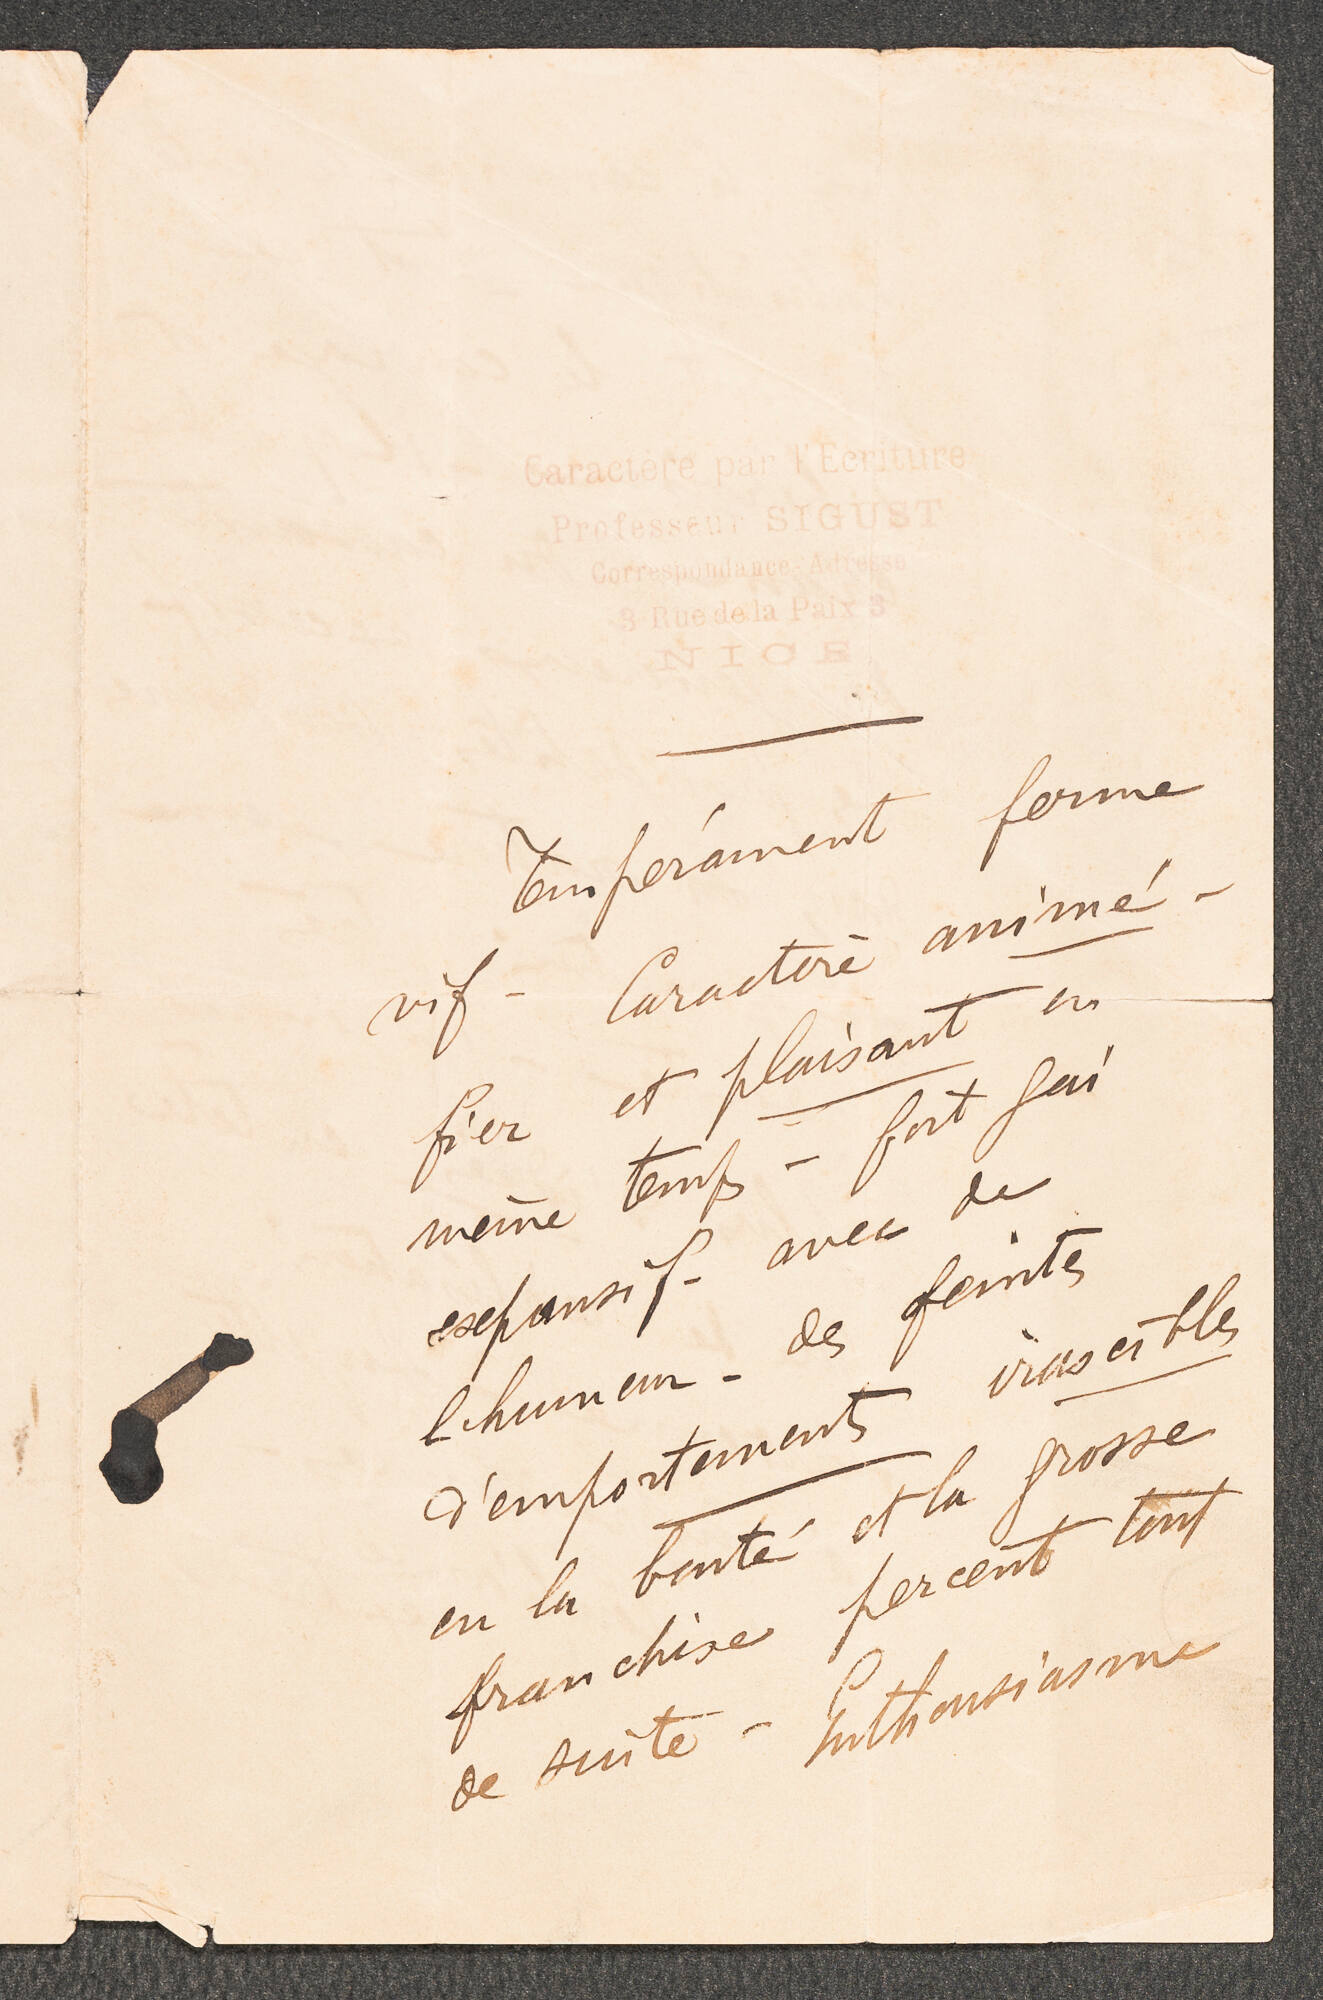 Caractère par l'Ecriture
Professeur SIGUST
Correspondance-Adresse
3 Rue de la Paix 3
NICE
Tempérament ferme
vif - Caractère animé -
fier et plaisant en
même temps - fort gai
expansif - avec de
l'humeur - des feintes
d'emportements irascibles
en la bonté et la grosse
franchise percent tout
de suite - Enthousiasme